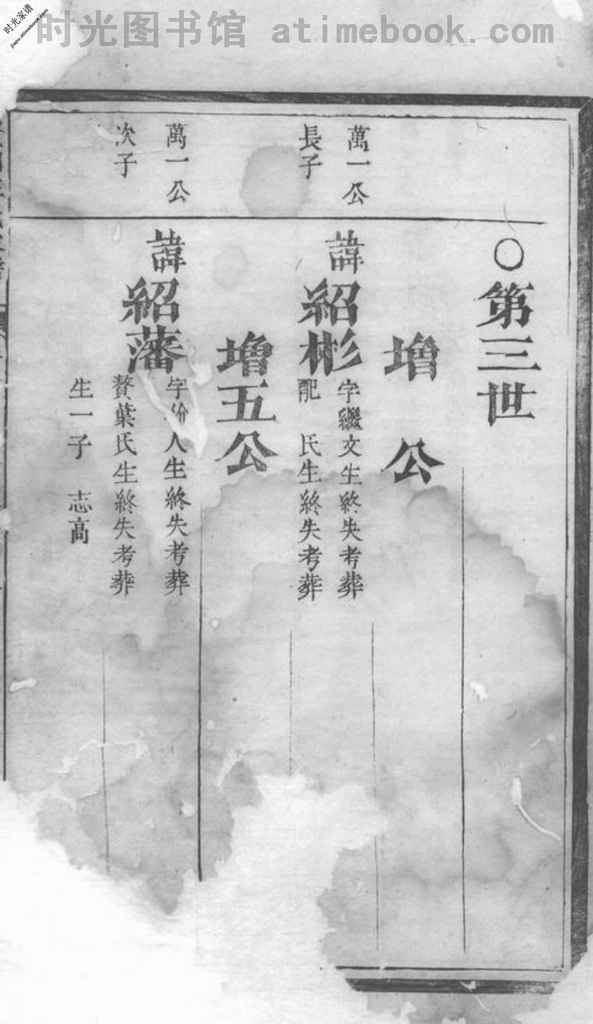 时光图书馆 atimebook.com
时光家谱
○第三世
增 公
萬一公
長子
諱紹彬
字繼文生終失考葬
配 民生終失考葬
增五公
萬一公
次子
諱紹藩
字 人生終失考葬
贅葉氏生終失考葬
生一子 志高